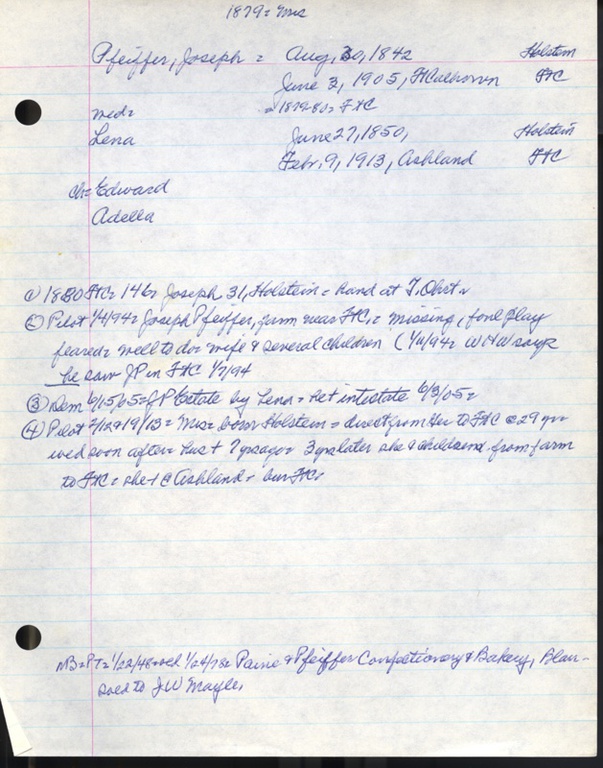 1879 = Mrs
Pfeiffer, Joseph = Aug, 30, 1842 Holstein
June 3, 1905, FtCalhoun FTC
wed = = 1879-80 = FTC
Lena June 27, 1850, Holstein
Febr. 9, 1913, Ashland FTC
ch = Edward
Adella
① 1880 FTC = 146 = Joseph 31, Holstein = hand at J.
② Pilot 1/4/94 = Joseph Pfeiffer, farm near FTC, = missing, foul play
feared = well to do = wife & several children ( 1/11/94 = WHW says
he saw JP in FTC 1/7/94
③ Dem 6/15/05 = JP Estate by Lena = he + intestate 6/3/05 =
④ Pilot 2/19/13 = Mrs = born Holstein = direct from Her to FTC @ 29 yr =
wed soon after = hus + 7 yrs ago = 3 yrs later she & children from farm
to FTC = she + @ Ashland = bur FTC =
MB = PT = 1/22/48 = wed 1/24/78 = Paine & Pfeiffer Confectionery & Bakery, Blair =
sold to J W Mayle,